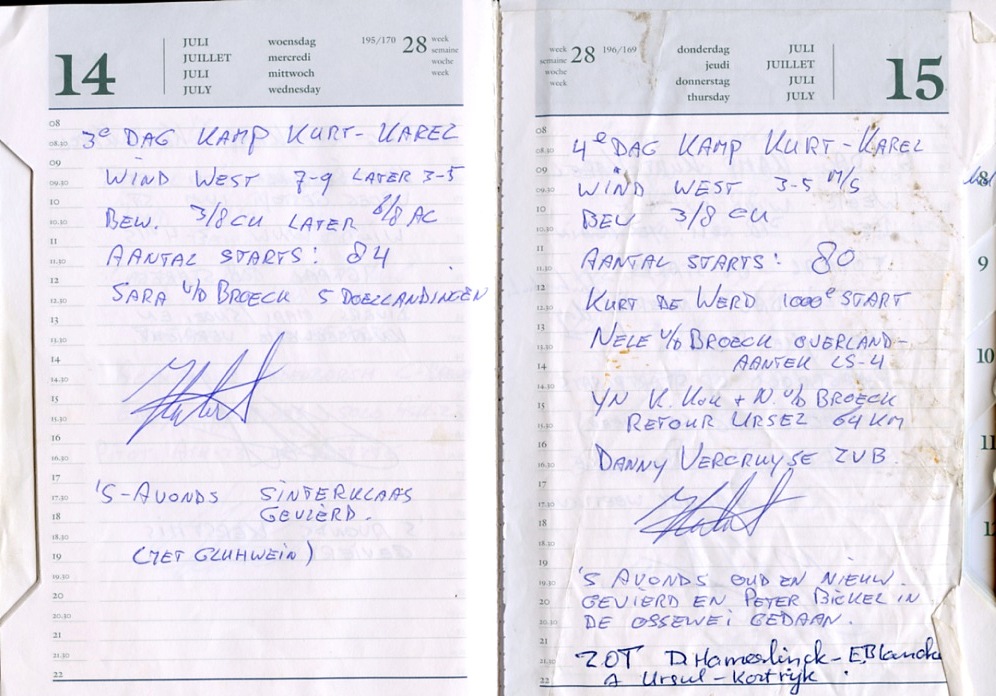 14
JULI woensdag 195/170 28 week
JUILLET mercredi semaine
JULI mittwoch woche
JULY wednesday week
08
08.30
09
09.30
10
10.30
11
11.30
12
12.30
13
13.30
14
14.30
15
15.30
16
16.30
17
17.30
18
18.30
19
19.30
20
20.30
21
21.30
22
3e DAG KAMP KURT-KAREL
WIND WEST 7-9 LATER 3-5
BEW. 3/8 CU LATER 8/8 AC
AANTAL STARTS: 84
SARA V/D BROECK 5 DOELLANDINGEN
'S-AVONDS SINTERKLAAS
GEVIERD.
(MET GLUHWEIN)
week 28 196/169 donderdag JULI
semaine jeudi JUILLET
woche donnerstag JULI
week thursday JULY
15
08
08.30
09
09.30
10
10.30
11
11.30
12
12.30
13
13.30
14
14.30
15
15.30
16
16.30
17
17.30
18
18.30
19
19.30
20
20.30
21
21.30
22
4e DAG KAMP KURT-KAREL
WIND WEST 3-5 M/S
BEW 3/8 CU
AANTAL STARTS: 80
KURT DE WERD 1000e START
NELE V/D BROECK OVERLAND-
AANTEK LS-4
YN K. KOK + N. V/D BROECK
RETOUR URSEL 64 KM
DANNY VERCRUYSE ZVB
'S AVONDS OUD EN NIEUW.
GEVIERD EN PETER BICKEL IN
DE OSSEWEI GEDAAN.
ZOT D. Hamerlinck - E. Blancke
A Ursul - Kortrijk
8
9
10
11
12